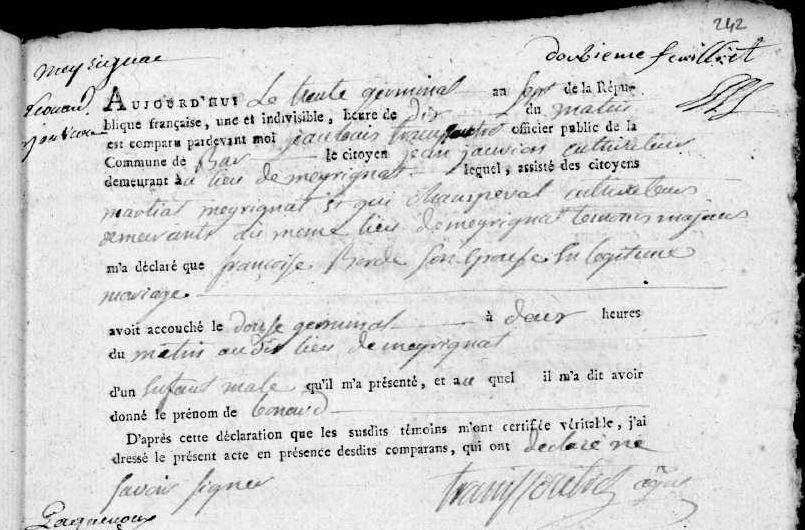 242
doubieme feuilliet
meysignac
AUJOURD'HUI Le trente germinal an sept de la Répu-
blique française, une et indivisible, heure de dix du matin
est comparu pardevant moi jean louis officier public de la
Commune de Bar le citoyen jean jauvion cultivateur
demeurant au lieu de meyrignat lequel, assisté des citoyens
martial meyrignat et gui champeval cultivateurs
demeurants au meme lieu de meyrignat temoins majeurs
m'a déclaré que françoise Borde son epouse En legitime
mariage
avoit accouché le douse germinal à deux heures
du matin audit lieu de meyrignat
d'un Enfant male qu'il m'a présenté, et au quel il m'a dit avoir
donné le prénom de Leonard
D'après cette déclaration que les susdits témoins m'ont certifiée véritable, j'ai
dressé le présent acte en présence desdits comparans, qui ont declaré ne
savoir signer